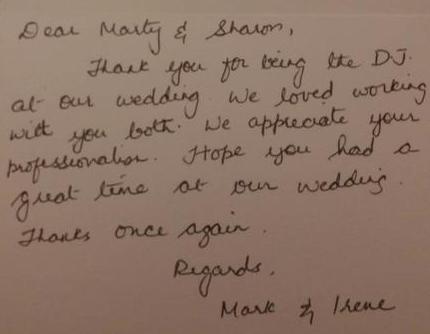 Dear Marty & Sharon,
Thank you for being the D.J.
at our wedding. We loved working
with you both. We appreciate your
professionalism. Hope you had a
great time at our wedding.
Thanks once again.
Regards,
Mark & Irene